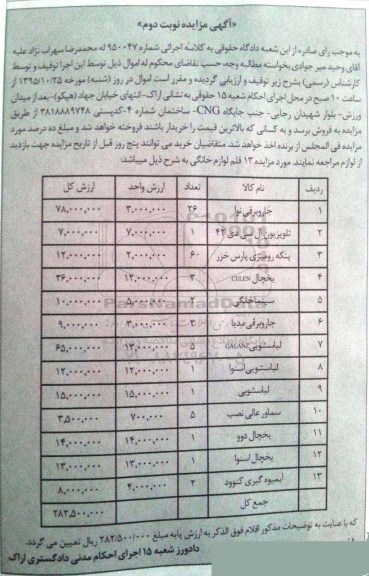 «آگهی مزایده نوبت دوم»
به موجب رای صادره از این شعبه دادگاه حقوقی به کلاسه اجرائی شماره ۹۵۰۰۴۷ له محمدرضا سهراب نژاد علیه
آقای وحید میر جوادی بخواسته مطالبه وجه حسب تقاضای محکوم له اموال ذیل توسط این اجرا توقیف و توسط
کارشناس (رسمی) بشرح زیر توقیف و ارزیابی گردیده و مقرر است اموال در روز (شنبه) مورخه ۱۳۹۵/۱۰/۲۵ از
ساعت ۱۰ صبح در محل اجرای احکام شعبه ۱۵ حقوقی به نشانی اراک- انتهای خیابان جهاد (هپکو)- بعد از میدان
ورزش- بلوار شهیدان رجایی- جنب جایگاه CNG- ساختمان شماره ۴- کدپستی ۳۸۱۸۸۸۹۷۴۸ از طریق
مزایده به فروش برسد و به کسانی که بالاترین قیمت را خریدار باشند فروخته خواهد شد و مبلغ ده درصد مورد
مزایده فی المجلس از برنده اخذ خواهد شد. متقاضیان خرید می توانند پنج روز قبل از تاریخ مزایده جهت بازدید
از لوازم مراجعه نمایند. مورد مزایده ۱۳ قلم لوازم خانگی به شرح ذیل میباشد:
ردیف نام کالا تعداد ارزش واحد ارزش کل
۱ جاروبرقی نوا ۲۶ ۳,۰۰۰,۰۰۰ ۷۸,۰۰۰,۰۰۰
۲ تلویزیون ال سی دی ۴۳ ۱ ۷,۰۰۰,۰۰۰ ۷,۰۰۰,۰۰۰
۳ پنکه رومیزی پارس خزر ۶۰ ۲,۰۰۰,۰۰۰ ۱۲,۰۰۰,۰۰۰
۴ یخچال CELEN ۳ ۱۲,۰۰۰,۰۰۰ ۳۶,۰۰۰,۰۰۰
۵ سینما خانگی ۲ ۵,۰۰۰,۰۰۰ ۱۰,۰۰۰,۰۰۰
۶ جاروبرقی مدیا ۳ ۳,۰۰۰,۰۰۰ ۹,۰۰۰,۰۰۰
۷ لباسشویی GALANZ ۵ ۱۳,۰۰۰,۰۰۰ ۶۵,۰۰۰,۰۰۰
۸ لباسشویی اسنوا ۱ ۱۲,۰۰۰,۰۰۰ ۱۲,۰۰۰,۰۰۰
۹ لباسشویی ۱ ۱۵,۰۰۰,۰۰۰ ۱۵,۰۰۰,۰۰۰
۱۰ سماور عالی نصب ۵ ۷۰۰,۰۰۰ ۳,۵۰۰,۰۰۰
۱۱ یخچال دوو ۱ ۱۴,۰۰۰,۰۰۰ ۱۴,۰۰۰,۰۰۰
۱۲ یخچال اسنوا ۱ ۱۳,۰۰۰,۰۰۰ ۱۳,۰۰۰,۰۰۰
۱۳ آبمیوه گیری کنوود ۲ ۴,۰۰۰,۰۰۰ ۸,۰۰۰,۰۰۰
جمع کل ۲۸۲,۵۰۰,۰۰۰
که با عنایت به توضیحات مذکور اقلام فوق الذکر به ارزش پایه مبلغ ۲۸۲/۵۰۰/۰۰۰ ریال تعیین می گردد.
دادورز شعبه ۱۵ اجرای احکام مدنی دادگستری اراک